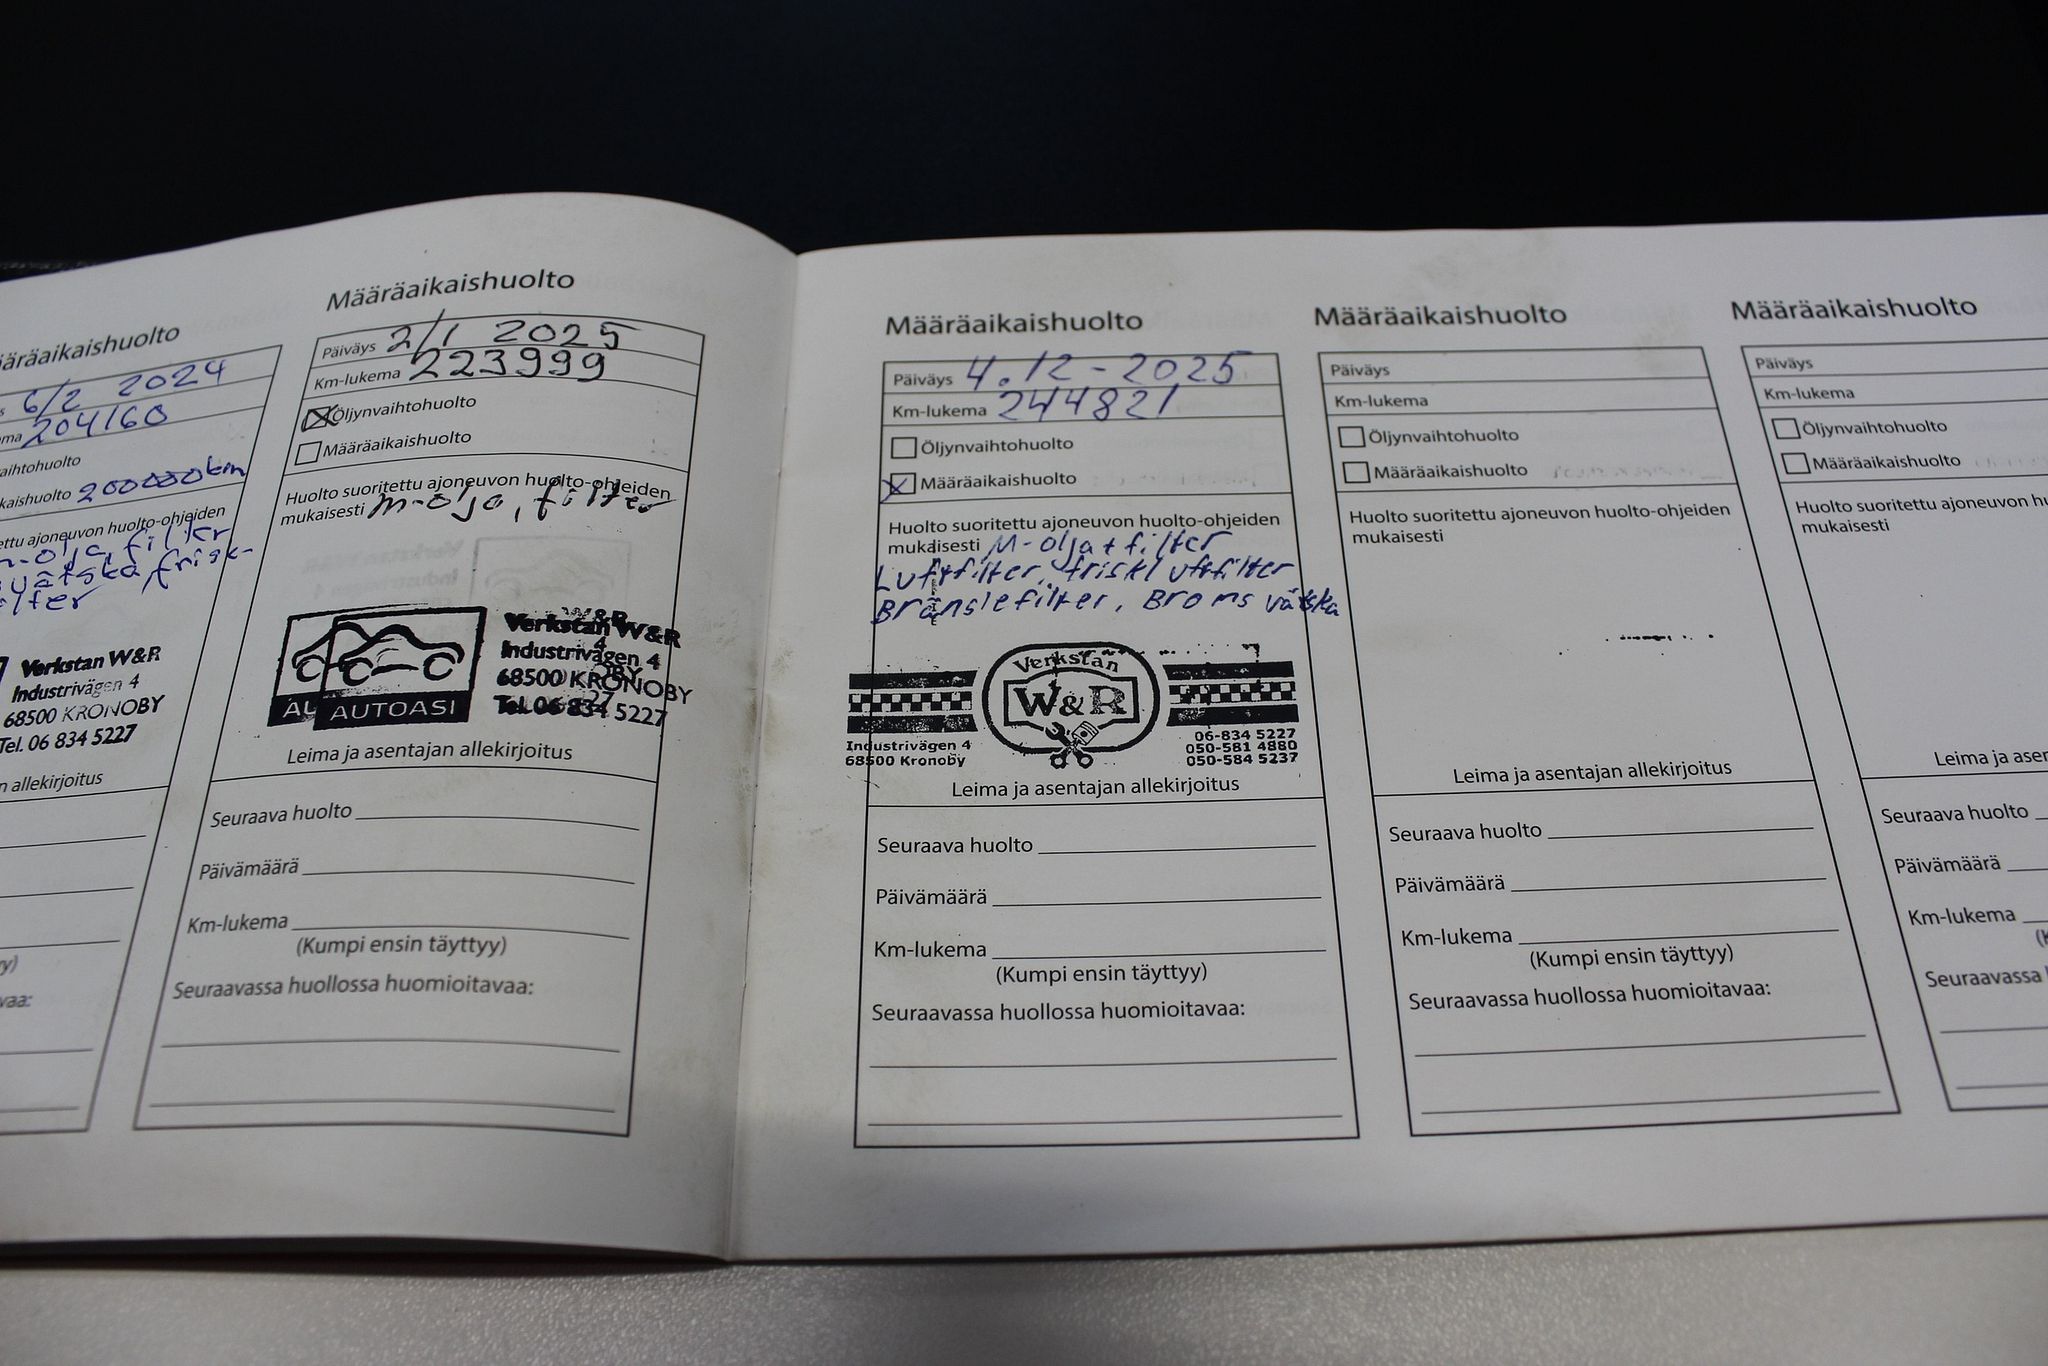 Määräaikaishuolto
6/2 2024
204160
200000km
m-olja, filter
frisk-
Verkstan W&R
Industrivägen 4
68500 KRONOBY
Tel. 06 834 5227
allekirjoitus
Määräaikaishuolto
Päiväys 2/1 2025
Km-lukema 223999
Öljynvaihtohuolto
Määräaikaishuolto
Huolto suoritettu ajoneuvon huolto-ohjeiden
mukaisesti m-olja, filter
AUTOASI
Verkstan W&R
Industrivägen 4
68500 KRONOBY
Tel. 06 834 5227
Leima ja asentajan allekirjoitus
Seuraava huolto
Päivämäärä
Km-lukema
(Kumpi ensin täyttyy)
Seuraavassa huollossa huomioitavaa:
Määräaikaishuolto
Päiväys 4.12-2025
Km-lukema 244821
Öljynvaihtohuolto
Määräaikaishuolto
Huolto suoritettu ajoneuvon huolto-ohjeiden
mukaisesti M-olja + filter
Luftfilter, friskluftfilter
Bränslefilter, Bromsvätska
Verkstan
W&R
Industrivägen 4
68500 Kronoby
06-834 5227
050-581 4880
050-584 5237
Leima ja asentajan allekirjoitus
Seuraava huolto
Päivämäärä
Km-lukema
(Kumpi ensin täyttyy)
Seuraavassa huollossa huomioitavaa:
Määräaikaishuolto
Päiväys
Km-lukema
Öljynvaihtohuolto
Määräaikaishuolto
Huolto suoritettu ajoneuvon huolto-ohjeiden
mukaisesti
Leima ja asentajan allekirjoitus
Seuraava huolto
Päivämäärä
Km-lukema
(Kumpi ensin täyttyy)
Seuraavassa huollossa huomioitavaa:
Määräaikaishuolto
Päiväys
Km-lukema
Öljynvaihtohuolto
Määräaikaishuolto
Huolto suoritettu ajoneuvon
mukaisesti
Leima ja
Seuraava huolto
Päivämäärä
Km-lukema
Seuraavassa